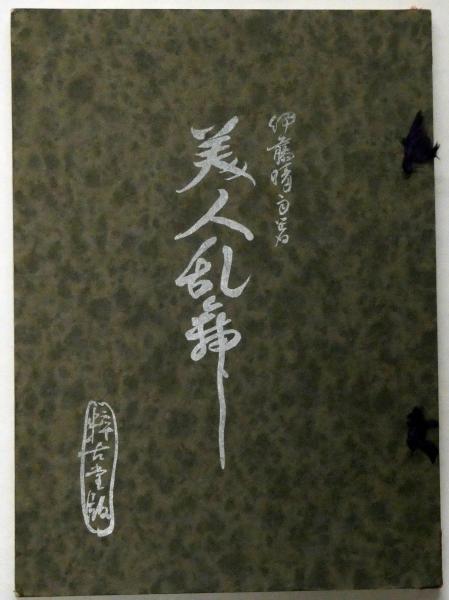 伊藤晴雨著
美人乱舞
粹古堂版